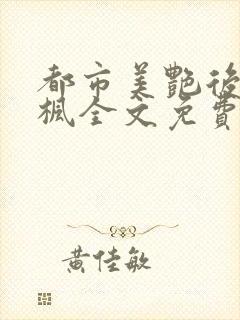 都市美艷後
楓全文免費
黃佳敏